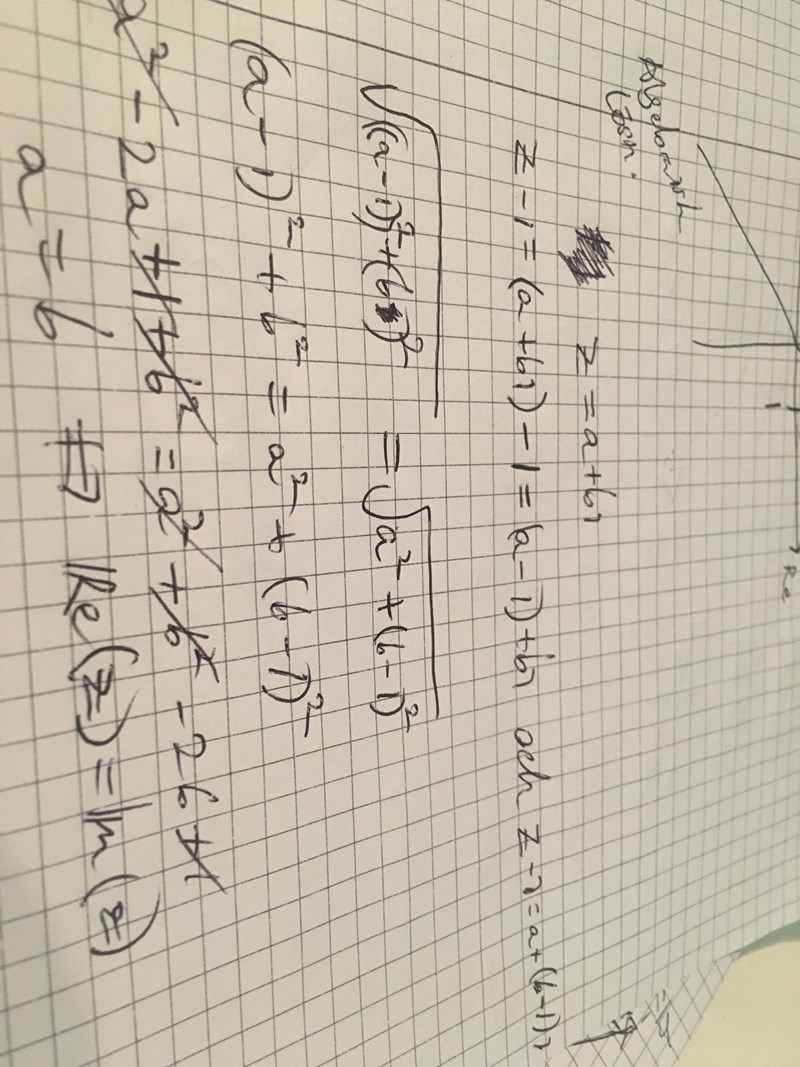 Re
1
Algebraisk
lösn.
z = a+bi
z-1 = (a+bi)-1 = (a-1)+bi och z-i = a+(b-1)i
√((a-1)²+(b)²) = √(a²+(b-1)²)
(a-1)² + b² = a² + (b-1)²
a² - 2a + 1 + b² = a² + b² - 2b + 1
a = b ⇒ Re(z) = Im(z)